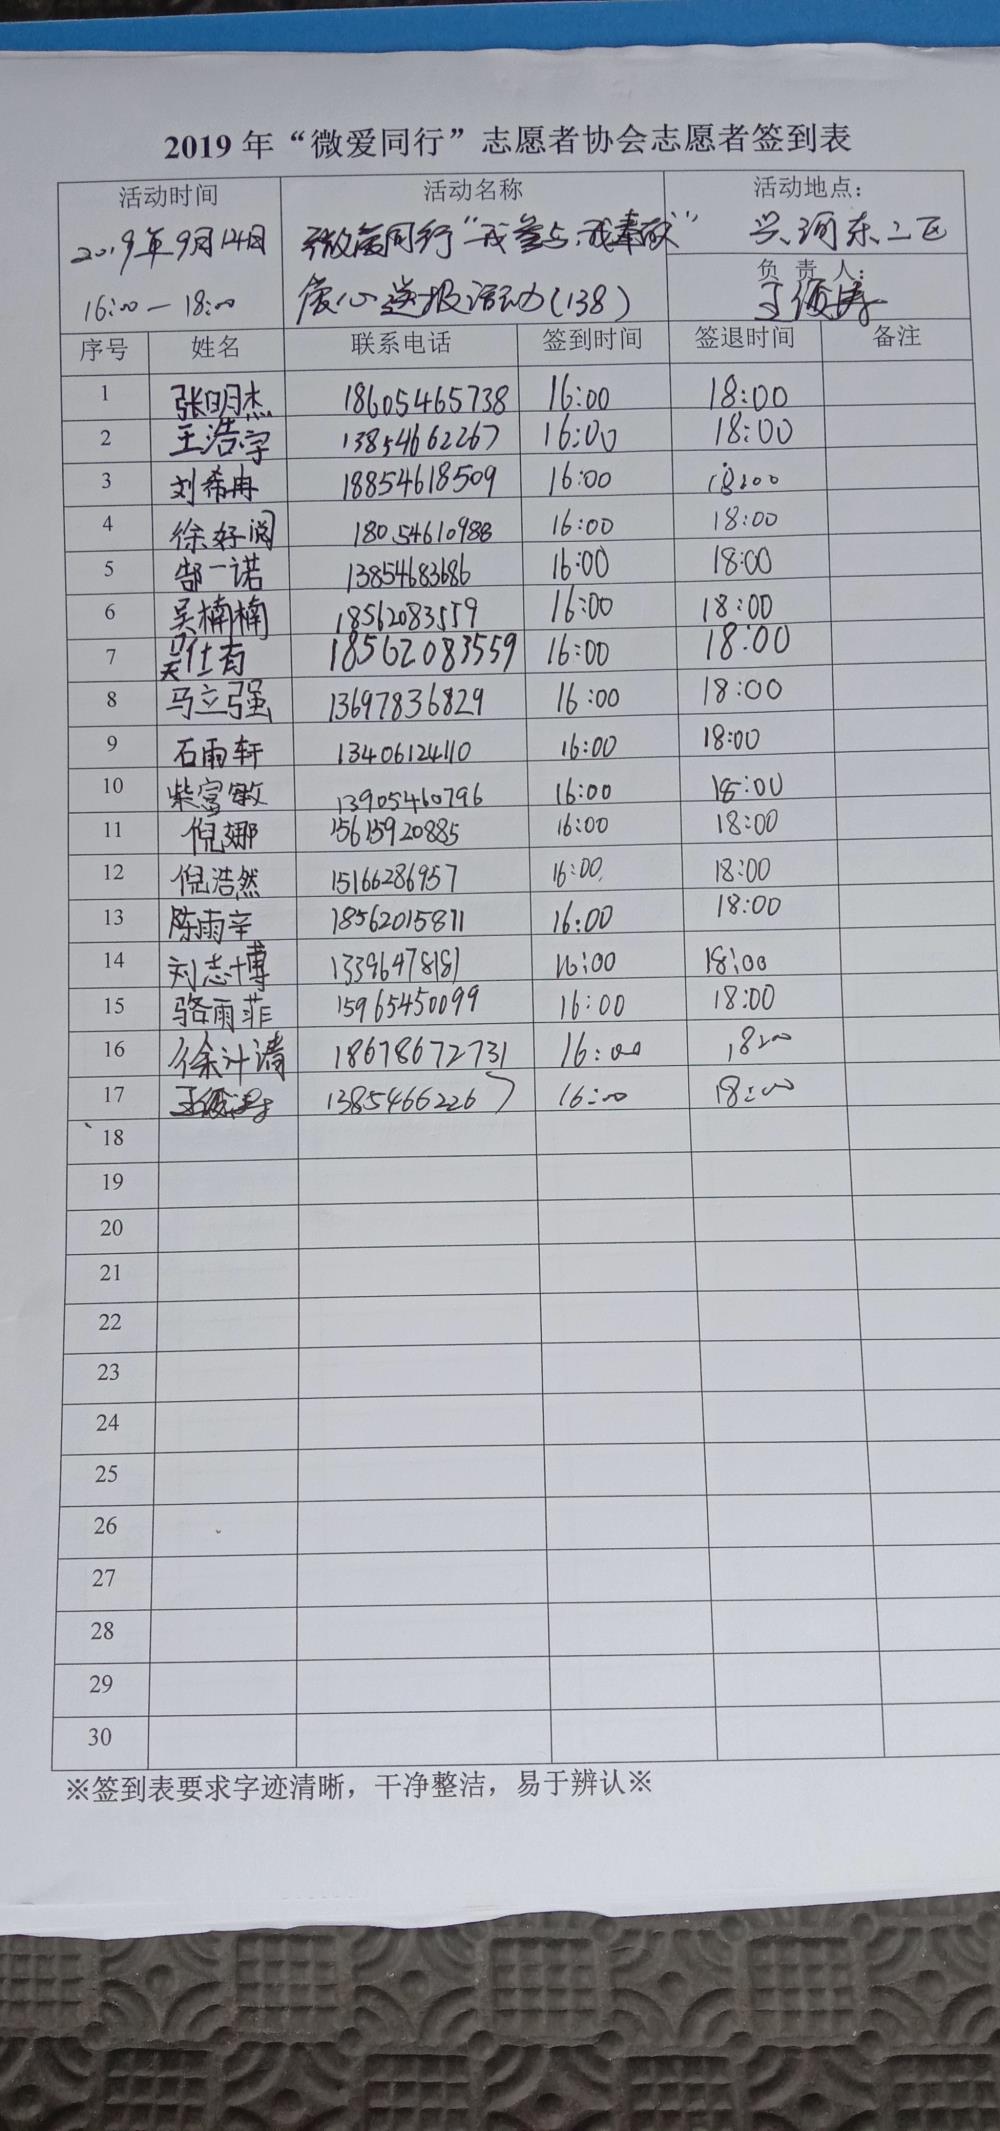 2019 年“微爱同行”志愿者协会志愿者签到表
活动时间 活动名称 活动地点：
2019年9月14日 微爱同行“我参与、我奉献” 兴河东二区
负 责 人：
16:00—18:00 爱心送报活动(138)
序号 姓名 联系电话 签到时间 签退时间 备注
1 张明杰 18605465738 16:00 18:00
2 王浩宇 13854662267 16:00 18:00
3 刘希冉 18854618509 16:00 18:00
4 徐好阅 18054610988 16:00 18:00
5 郜一诺 13854683686 16:00 18:00
6 吴楠楠 18562083559 16:00 18:00
7 吴仕有 18562083559 16:00 18:00
8 马立强 13697836829 16:00 18:00
9 石雨轩 13406124110 16:00 18:00
10 柴富敏 13905460796 16:00 18:00
11 倪娜 15615920885 16:00 18:00
12 倪浩然 15166286957 16:00 18:00
13 陈雨辛 18562015811 16:00 18:00
14 刘志博 13396478181 16:00 18:00
15 骆雨菲 15965450099 16:00 18:00
16 徐汁清 18678672731 16:00 18:00
17 13854662267 16:00 18:00
18
19
20
21
22
23
24
25
26
27
28
29
30
※签到表要求字迹清晰，干净整洁，易于辨认※